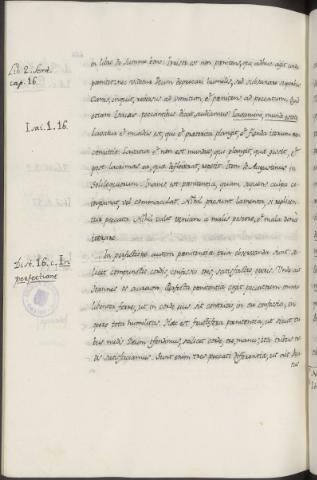 in libr. de summo bono: Irrisor est non pœnitens, qui adhuc agit unde
Lib. 2. sent. cap. 16.
pœnitet: nec videtur Deum deprecari humilis, sed subsannare superbus.
Canis, inquit, reversus ad vomitum, & pœnitens ad peccatum. Quid
etiam Isaias peccantibus dicat, audiamus: Lavamini, mundi estote.
Isai. 1. 16.
Lavatur et mundus est, qui & præterita plangit, & flenda iterum non
committit. Lavatur & non est mundus, qui plangit, quæ gessit, & 
post lacrimas ea, quæ defleverat, repetit. Item D. Augustinus in
soliloquiorum: Inanis est pœnitentia, quam sequens culpa co-
inquinat, vel commaculat. Nihil prosunt lamenta, si replican-
tur peccata. Nihil valet veniam a malis poscere, & mala denuo
iterare.
Dist. 16. c. In perfectione
In perfectione autem pœnitentiæ tria observanda sunt, sci-
licet compunctio cordis, confessio oris, satisfactio operis. Unde
Joannes os aureum: Perfecta pœnitentia cogit peccatorem omnia
libenter ferre, ut in corde ejus sit contritio, in ore confessio, in
opere tota humilitas. Hæc est fructifera pœnitentia, ut sicut tri-
bus modis Deum offendimus, scilicet corde, ore, manu; ita tribus mo-
dis satisfaciamus. Sunt enim tres peccati differentiæ, ut ait